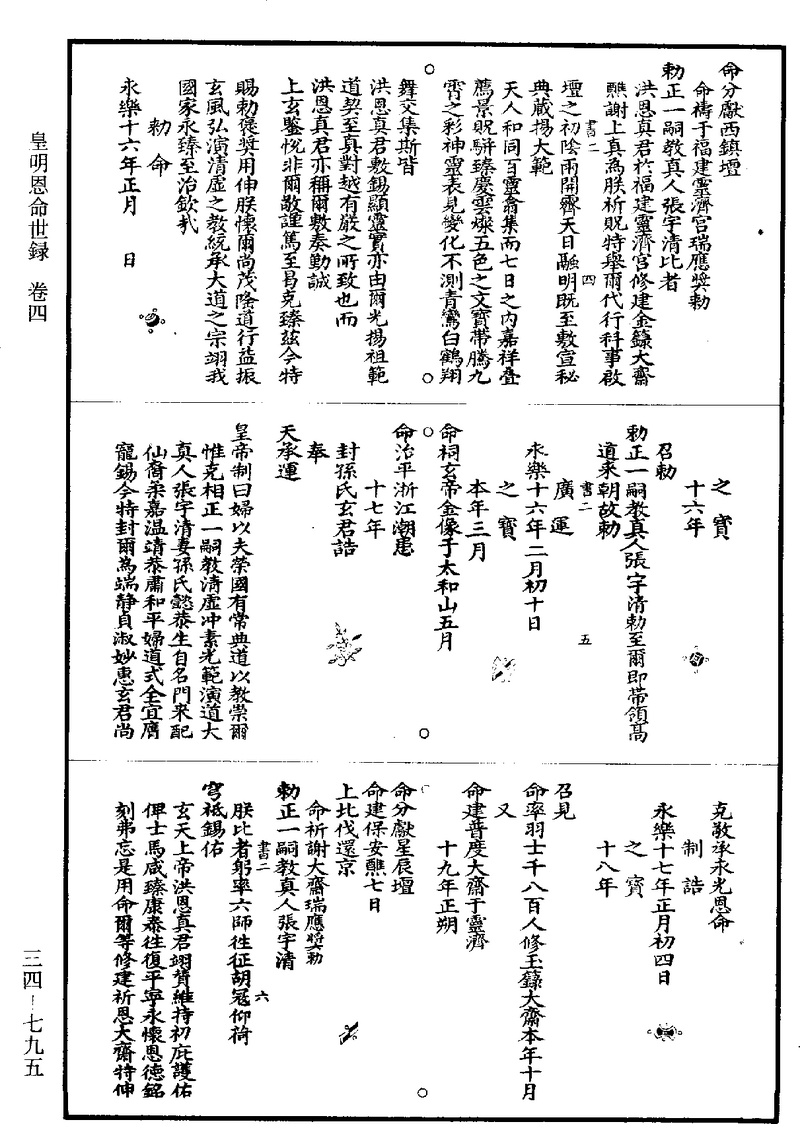 命分獻西鎮壇
命禱于福建靈濟宮瑞應獎勅
勅正一嗣教真人張宇清比者
洪恩真君於福建靈濟宮修建金籙大齋
醮謝上真為朕祈貺特舉爾代行科事啟
書二
四
壇之初陰雨開霽天日融明既至敷宣秘
典蕆揚大範
天人和同百靈翕集而七日之内嘉祥疊
薦景貺駢臻慶雲燦五色之文寶帶騰九
霄之彩神靈表見變化不測青鸞白鶴翔
舞交集斯皆
洪恩真君敷錫顯靈實亦由爾光揚祖範
道契至真對越有嚴之所致也而
洪恩真君亦稱爾敷奏勤誠
上玄鑒悅非爾敬謹篤至曷克臻茲今特
賜勅褒獎用伸朕懷爾尚茂隆道行益振
玄風弘演清虛之教統承大道之宗翊我
國家永臻至治欽哉
勅命
永樂十六年正月　日
之寶
十六年
召勅
勅正一嗣教真人張宇清勅至爾即帶領高
道來朝故勅
書二
五
廣運
永樂十六年二月初十日
之寶
本年三月
命祠玄帝金像于太和山五月
命治平浙江潮患
十七年
封孫氏玄君誥
奉
天承運
皇帝制曰婦以夫榮國有常典道以教崇爾
惟克相正一嗣教清虛冲素光範演道大
真人張宇清妻孫氏懿恭生自名門來配
仙裔柔嘉温靖恭肅和平婦道式全宜膺
寵錫今特封爾為端靜貞淑妙惠玄君尚
克敬承永光恩命
制誥
永樂十七年正月初四日
之寶
十八年
召見
命率羽士千八百人修玉籙大齋本年十月
又
命建普度大齋于靈濟
十九年正朔
命分獻星辰壇
命建保安醮七日
上北伐還京
命祈謝大齋瑞應獎勅
勅正一嗣教真人張宇清
書二
六
朕比者躬率六師往征胡冦仰荷
穹祇錫佑
玄天上帝洪恩真君翊贊維持初庇護佑
俾士馬咸臻康泰往復平寧永懷恩德銘
刻弗忘是用命爾等修建祈恩大齋特伸
皇明恩命世録　卷四
三四—七九五